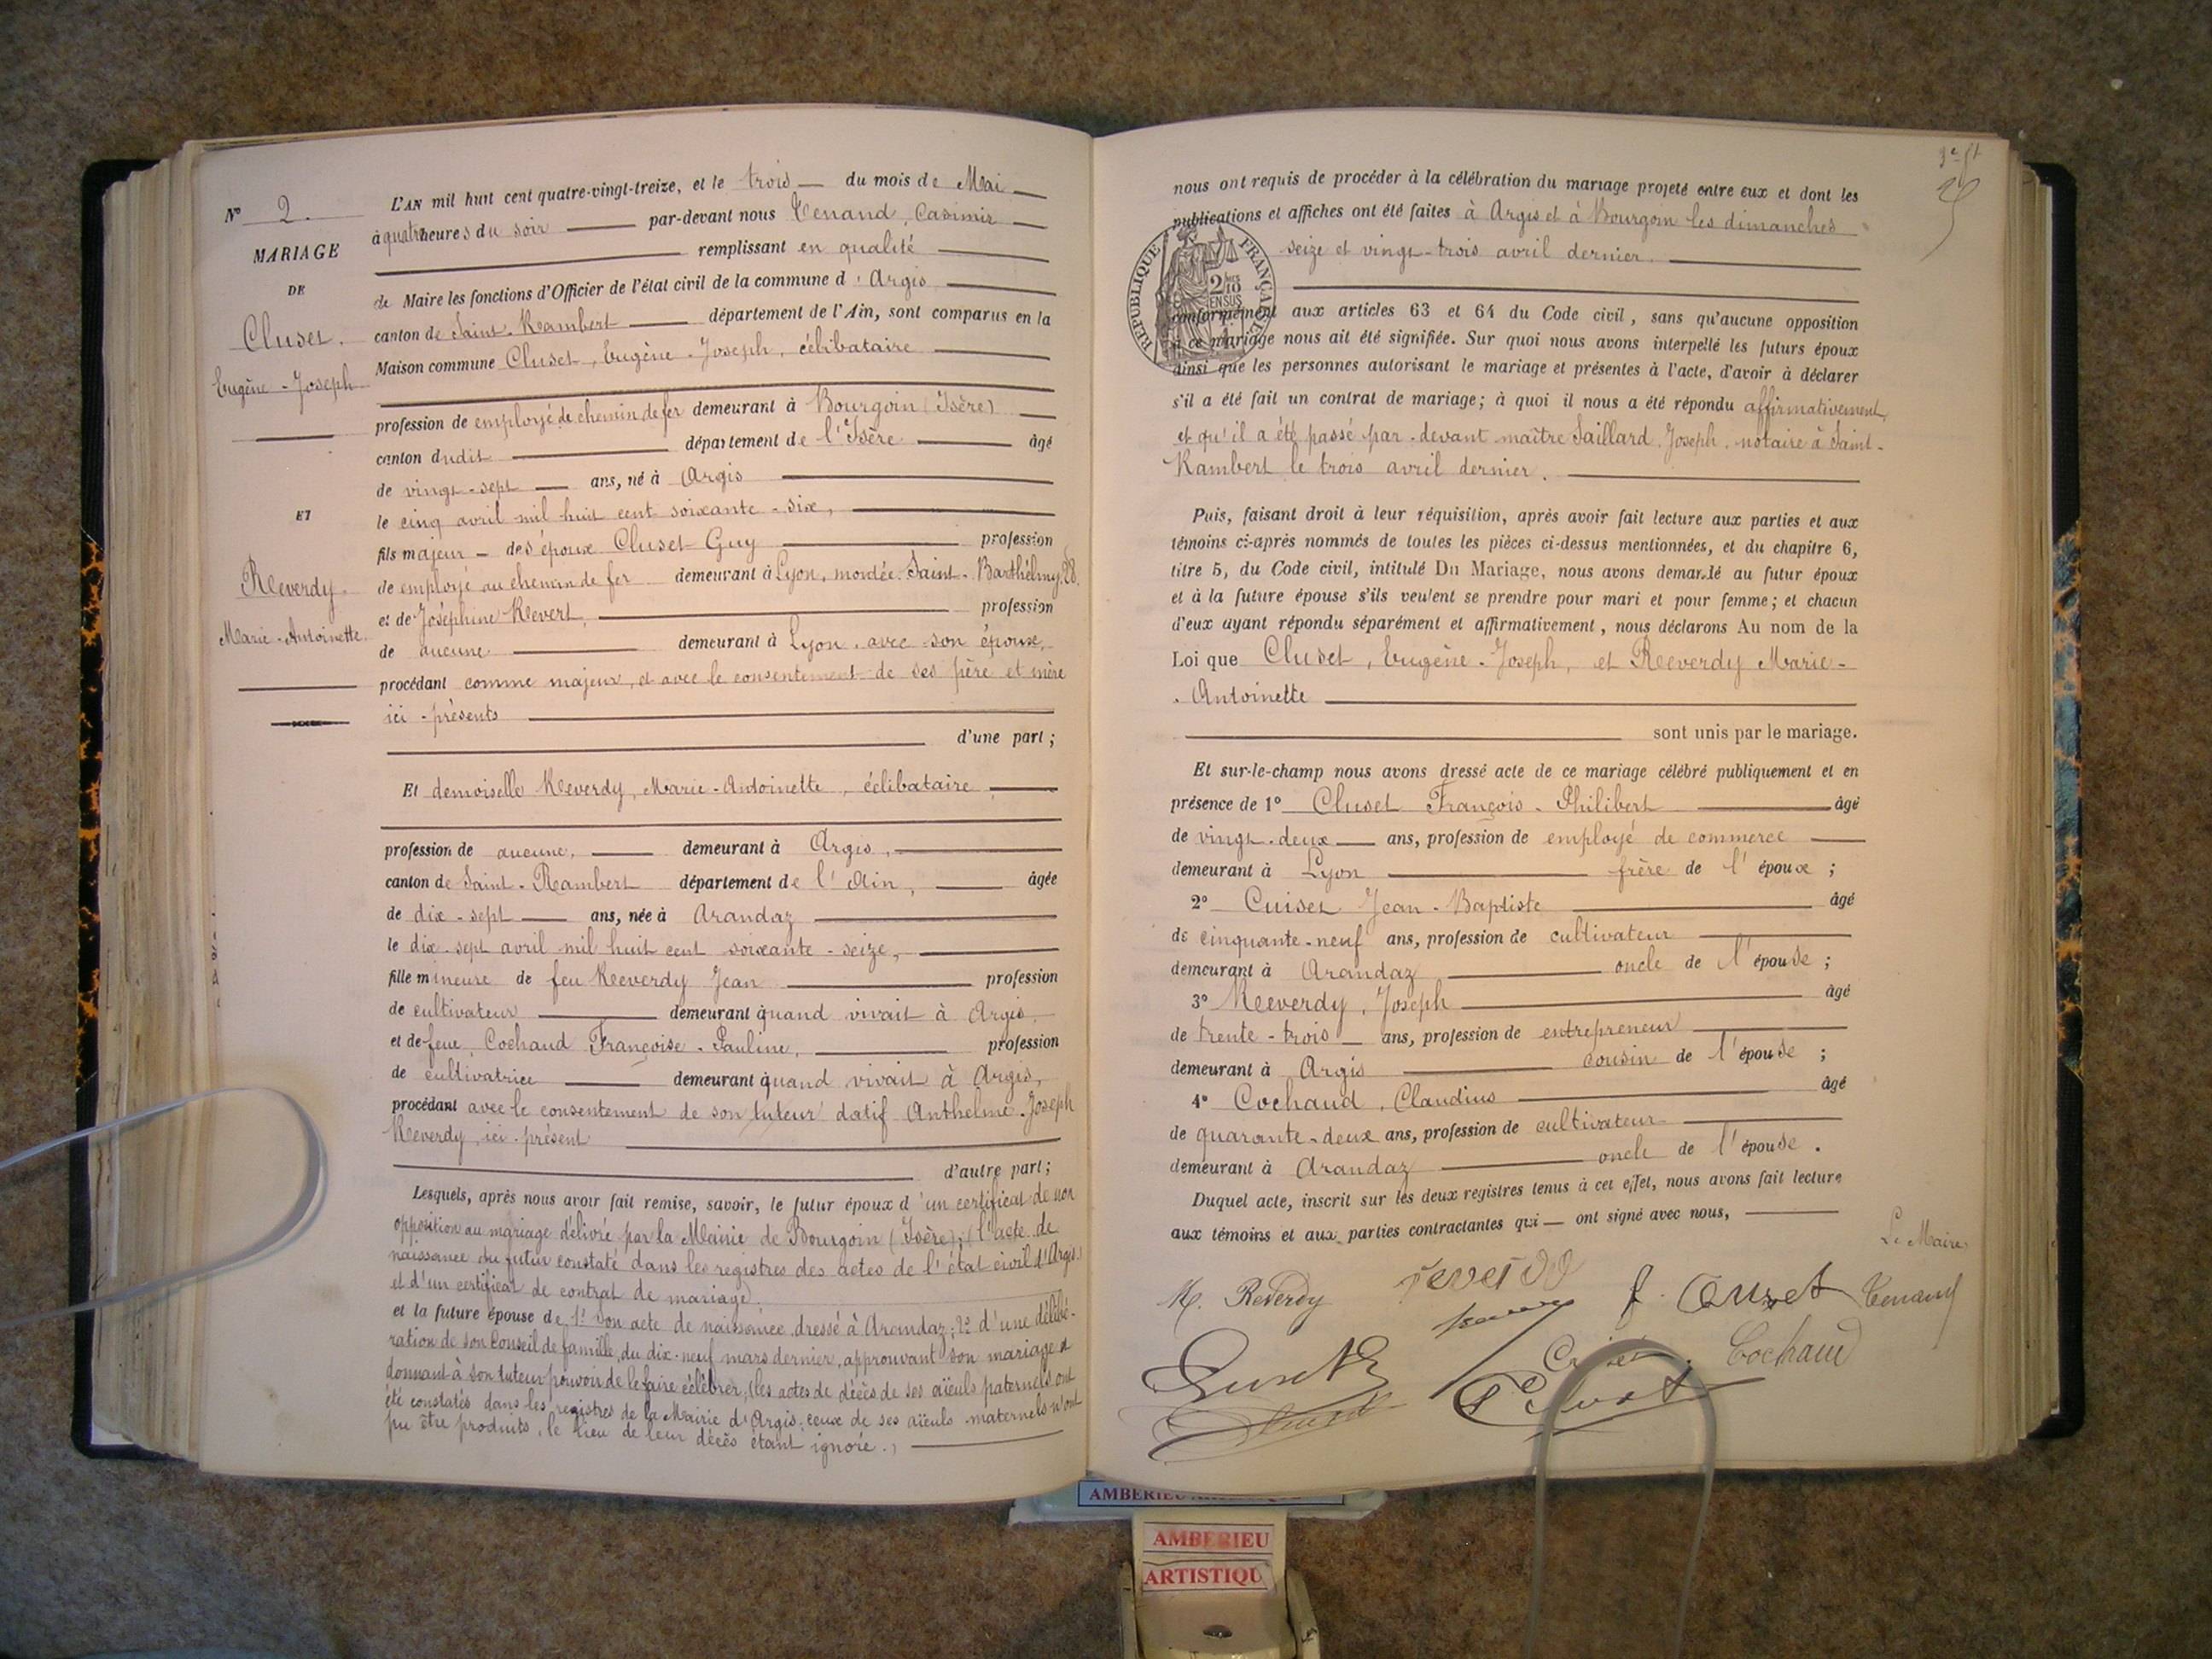 N° 2.
MARIAGE
DE
Cluset.
Eugène-Joseph
ET
Reverdy.
Marie-Antoinette.
L'AN mil huit cent quatre-vingt-treize, et le trois du mois de Mai
à quatre heures du soir par-devant nous Tenand, Casimir
remplissant en qualité
de Maire les fonctions d'Officier de l'état civil de la commune d'Argis
canton de Saint-Rambert département de l'Ain, sont comparus en la
Maison commune Cluset, Eugène-Joseph, célibataire
profession de employé de chemin de fer demeurant à Bourgoin (Isère)
canton dudit département de l'Isère âgé
de vingt-sept ans, né à Argis
le cinq avril mil huit cent soixante-six,
fils majeur des époux Cluset Guy profession
de employé au chemin de fer demeurant à Lyon, montée Saint-Barthélmy, 28.
et de Joséphine Revert, profession
de aucune demeurant à Lyon, avec son époux,
procédant comme majeur, et avec le consentement de ses père et mère
ici présents
d'une part;
Et demoiselle Reverdy, Marie-Antoinette, célibataire,
profession de aucune, demeurant à Argis,
canton de Saint-Rambert département de l'Ain, âgée
de dix-sept ans, née à Arandaz
le dix-sept avril mil huit cent soixante-seize,
fille mineure de feu Reverdy Jean profession
de cultivateur demeurant quand vivait à Argis
et de feue Cochaud Françoise-Pauline, profession
de cultivatrice demeurant quand vivait à Argis,
procédant avec le consentement de son tuteur datif Anthelme-Joseph
Reverdy, ici présent
d'autre part;
Lesquels, après nous avoir fait remise, savoir, le futur époux d'un certificat de non
opposition au mariage délivré par la Mairie de Bourgoin (Isère); (l'acte de
naissance du futur constaté dans les registres des actes de l'état civil d'Argis)
et d'un certificat de contrat de mariage.
et la future épouse de 1° Son acte de naissance dressé à Arandaz; 2° d'une délibé-
ration de son Conseil de famille, du dix-neuf mars dernier, approuvant son mariage et
donnant à son tuteur pouvoir de le faire célébrer; (les actes de décès de ses aïeuls paternels ont
été constatés dans les registres de la Mairie d'Argis; ceux de ses aïeuls maternels n'ont
pu être produits, le lieu de leur décès étant ignoré.)
nous ont requis de procéder à la célébration du mariage projeté entre eux et dont les
publications et affiches ont été faites à Argis et à Bourgoin les dimanches
seize et vingt-trois avril dernier.
RÉPUBLIQUE FRANÇAISE
2/10 EN SUS
conformément aux articles 63 et 64 du Code civil, sans qu'aucune opposition
à ce mariage nous ait été signifiée. Sur quoi nous avons interpellé les futurs époux
ainsi que les personnes autorisant le mariage et présentes à l'acte, d'avoir à déclarer
s'il a été fait un contrat de mariage; à quoi il nous a été répondu affirmativement
et qu'il a été passé par-devant maître Saillard Joseph, notaire à Saint-
Rambert le trois avril dernier.
Puis, faisant droit à leur réquisition, après avoir fait lecture aux parties et aux
témoins ci-après nommés de toutes les pièces ci-dessus mentionnées, et du chapitre 6,
titre 5, du Code civil, intitulé Du Mariage, nous avons demandé au futur époux
et à la future épouse s'ils veulent se prendre pour mari et pour femme; et chacun
d'eux ayant répondu séparément et affirmativement, nous déclarons Au nom de la
Loi que Cluset, Eugène-Joseph, et Reverdy Marie-
Antoinette
sont unis par le mariage.
Et sur-le-champ nous avons dressé acte de ce mariage célébré publiquement et en
présence de 1° Cluset François-Philibert âgé
de vingt-deux ans, profession de employé de commerce
demeurant à Lyon frère de l'époux;
2° Cuiset Jean-Baptiste âgé
de cinquante-neuf ans, profession de cultivateur
demeurant à Arandaz oncle de l'épouse;
3° Reverdy, Joseph âgé
de trente-trois ans, profession de entrepreneur
demeurant à Argis cousin de l'épouse;
4° Cochaud, Claudius âgé
de quarante-deux ans, profession de cultivateur
demeurant à Arandaz oncle de l'épouse.
Duquel acte, inscrit sur les deux registres tenus à cet effet, nous avons fait lecture
aux témoins et aux parties contractantes qui ont signé avec nous,
Le Maire
M. Reverdy
Tenand
Cochaud
AMBERIEU
AMBERIEU
ARTISTIQU